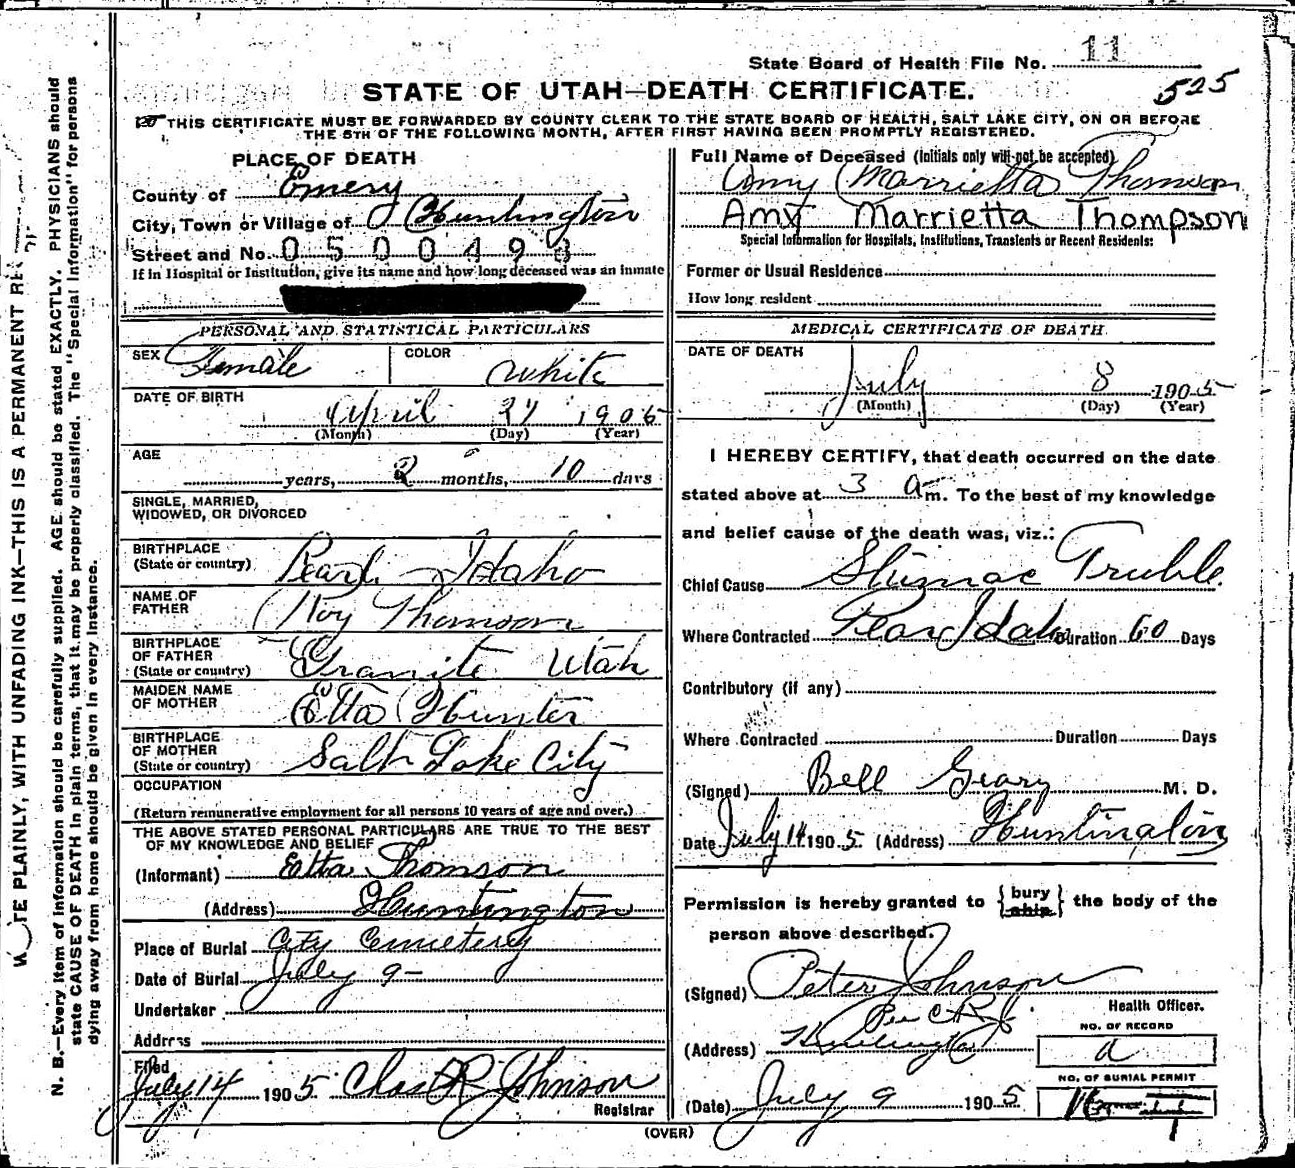 State Board of Health File No. 11
525
STATE OF UTAH—DEATH CERTIFICATE.
THIS CERTIFICATE MUST BE FORWARDED BY COUNTY CLERK TO THE STATE BOARD OF HEALTH, SALT LAKE CITY, ON OR BEFORE
THE 5TH OF THE FOLLOWING MONTH, AFTER FIRST HAVING BEEN PROMPTLY REGISTERED.
PLACE OF DEATH
County of Emery
City, Town or Village of Huntington
Street and No. 0500498
If in Hospital or Institution, give its name and how long deceased was an inmate
PERSONAL AND STATISTICAL PARTICULARS
SEX Female COLOR White
DATE OF BIRTH
April 27 1905
(Month) (Day) (Year)
AGE
years, 2 months, 10 days
SINGLE, MARRIED,
WIDOWED, OR DIVORCED
BIRTHPLACE
(State or country) Pearl Idaho
NAME OF
FATHER Roy Thomson
BIRTHPLACE
OF FATHER
(State or country) Granite Utah
MAIDEN NAME
OF MOTHER Etta Hunter
BIRTHPLACE
OF MOTHER
(State or country) Salt Lake City
OCCUPATION
(Return remunerative employment for all persons 10 years of age and over.)
THE ABOVE STATED PERSONAL PARTICULARS ARE TRUE TO THE BEST
OF MY KNOWLEDGE AND BELIEF
(Informant) Etta Thomson
(Address) Huntington
Place of Burial City Cemetery
Date of Burial July 9-
Undertaker
Address
Filed
July 14 1905 Chas R Johnson
Registrar
Full Name of Deceased (Initials only will not be accepted)
Amy Marrietta Thomson
Amy Marrietta Thompson
Special Information for Hospitals, Institutions, Transients or Recent Residents:
Former or Usual Residence
How long resident
MEDICAL CERTIFICATE OF DEATH
DATE OF DEATH
July 8 1905
(Month) (Day) (Year)
I HEREBY CERTIFY, that death occurred on the date
stated above at 3 a m. To the best of my knowledge
and belief cause of the death was, viz.:
Chief Cause Stumac Truble
Where Contracted Pearl Idaho Duration 60 Days
Contributory (if any)
Where Contracted Duration Days
(Signed) Bell Geary M. D.
Date July 14 1905 (Address) Huntington
Permission is hereby granted to {bury ship} the body of the
person above described.
(Signed) Peter Johnson
Health Officer.
Per C R J
(Address) Huntington
NO. OF RECORD
a
NO. OF BURIAL PERMIT
(Date) July 9 1905
(OVER)
TE PLAINLY, WITH UNFADING INK—THIS IS A PERMANENT
N. B.—Every item of information should be carefully supplied. AGE should be stated EXACTLY. PHYSICIANS should
state CAUSE OF DEATH in plain terms, that it may be properly classified. The "Special Information" for persons
dying away from home should be given in every instance.